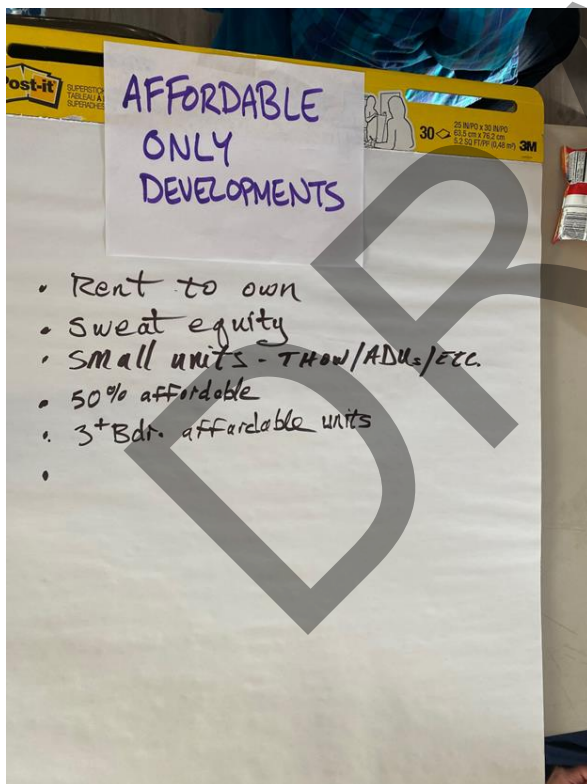 Post-it
SUPERSTICK
TABLEAU À
SUPERADHES
30
25 IN/PO x 30 IN/PO
63,5 cm x 76,2 cm
5.2 SQ FT/PP (0,48 m²)
3M
AFFORDABLE
ONLY
DEVELOPMENTS
• Rent to own
• Sweat equity
• Small units - THOW/ADUs/ETC.
• 50% affordable
• 3+ Bdr. affordable units
•
DR